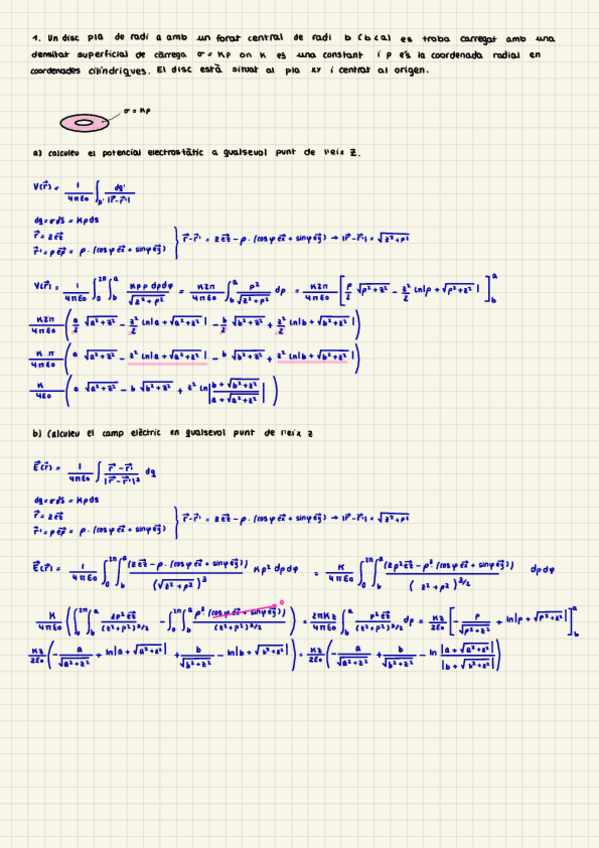 1. Un disc pla de radi a amb un forat central de radi b (b<a) es troba carregat amb una
densitat superficial de càrrega σ = Kρ on K és una constant i ρ és la coordenada radial en
coordenades cilíndriques. El disc està situat al pla xy i centrat al origen.
σ = Kρ
a) calculeu el potencial electrostàtic a qualsevol punt de l'eix z.
V(r⃗) = 1/4πε₀ ∫ dq'/|r⃗-r⃗'|
dq = σdS = Kρds
r⃗ = z e⃗z
r⃗' = ρ e⃗ρ = ρ·(cosφ e⃗x + sinφ e⃗y)
r⃗-r⃗' = z e⃗z - ρ·(cosφ e⃗x + sinφ e⃗y) → |r⃗-r⃗'| = √(z²+ρ²)
V(r⃗) = 1/4πε₀ ∫₀^2π ∫_b^a Kρρ dρdφ/√(z²+ρ²) = K2π/4πε₀ ∫_b^a ρ²/√(z²+ρ²) dρ = K2π/4πε₀ [ρ/2 √(ρ²+z²) - z²/2 ln|ρ+√(ρ²+z²)|]_b^a
K2π/4πε₀ (a/2 √(a²+z²) - z²/2 ln|a+√(a²+z²)| - b/2 √(b²+z²) + z²/2 ln|b+√(b²+z²)|)
Kπ/4πε₀ (a √(a²+z²) - z² ln|a+√(a²+z²)| - b √(b²+z²) + z² ln|b+√(b²+z²)|)
K/4ε₀ (a √(a²+z²) - b √(b²+z²) + z² ln|b+√(b²+z²)/a+√(a²+z²)|)
b) Calculeu el camp elèctric en qualsevol punt de l'eix z
E⃗(r⃗) = 1/4πε₀ ∫ r⃗-r⃗'/|r⃗-r⃗'|³ dq
dq = σdS = Kρds
r⃗ = z e⃗z
r⃗' = ρ e⃗ρ = ρ·(cosφ e⃗x + sinφ e⃗y)
r⃗-r⃗' = z e⃗z - ρ·(cosφ e⃗x + sinφ e⃗y) → |r⃗-r⃗'| = √(z²+ρ²)
E⃗(r⃗) = 1/4πε₀ ∫₀^2π ∫_b^a (z e⃗z - ρ·(cosφ e⃗x + sinφ e⃗y))/(√(z²+ρ²))³ Kρ² dρdφ = K/4πε₀ ∫₀^2π ∫_b^a (zρ² e⃗z - ρ³(cosφ e⃗x + sinφ e⃗y))/(z²+ρ²)^3/2 dρdφ
K/4πε₀ (∫₀^2π ∫_b^a zρ² e⃗z/(z²+ρ²)^3/2 - ∫₀^2π ∫_b^a ρ³(cosφ e⃗x + sinφ e⃗y)/(z²+ρ²)^3/2) 0 = 2πKz/4πε₀ ∫_b^a ρ² e⃗z/(z²+ρ²)^3/2 dρ = Kz/2ε₀ [-ρ/√(ρ²+z²) + ln|ρ+√(ρ²+z²)|]_b^a
Kz/2ε₀ (-a/√(a²+z²) + ln|a+√(a²+z²)| + b/√(b²+z²) - ln|b+√(b²+z²)|) = Kz/2ε₀ (-a/√(a²+z²) + b/√(b²+z²) - ln |a+√(a²+z²)|/|b+√(b²+z²)|)